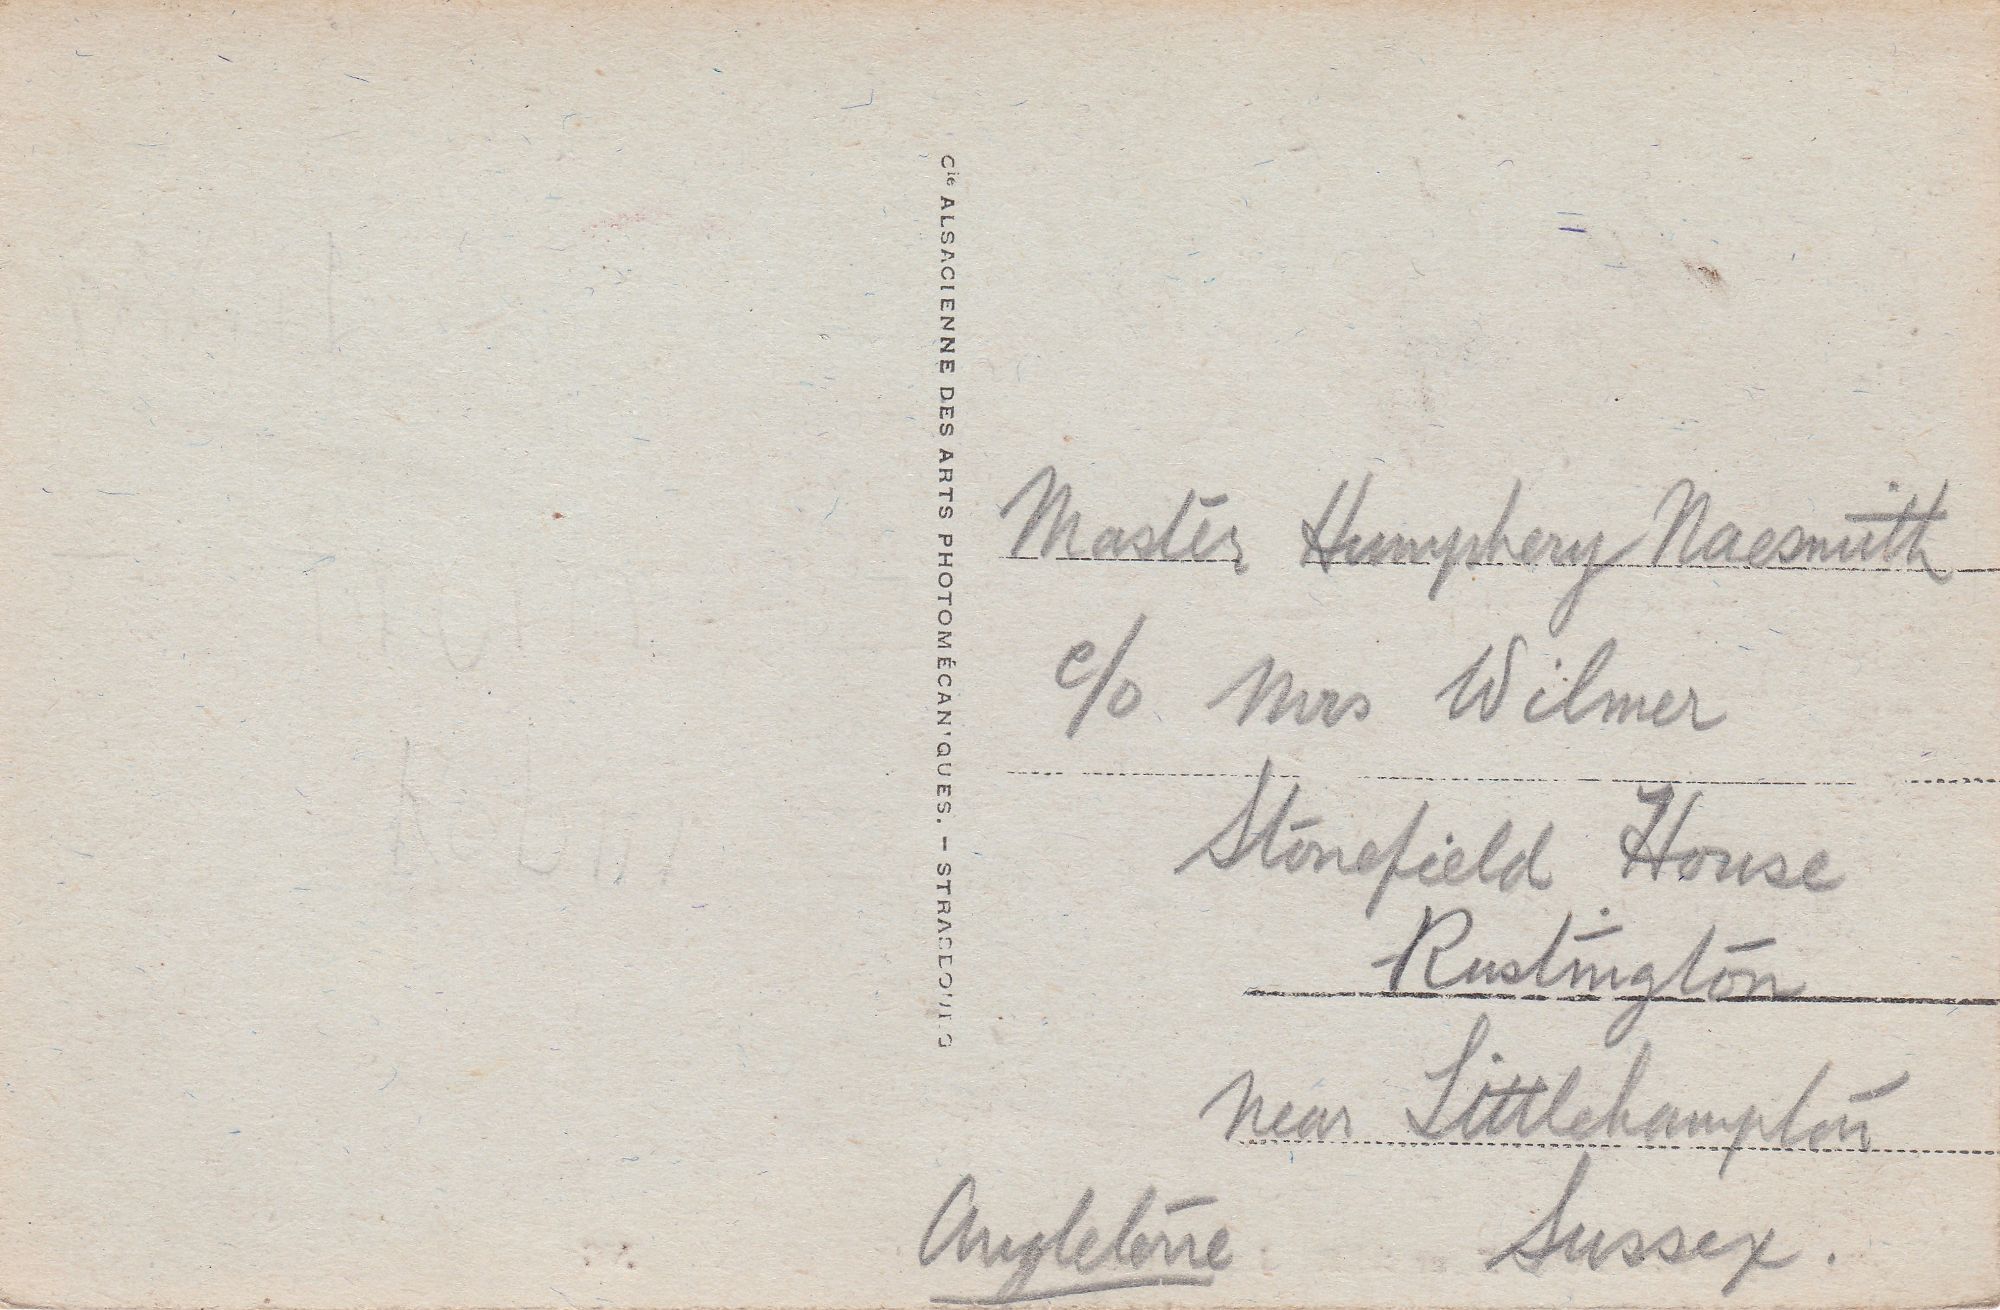 Cie ALSACIENNE DES ARTS PHOTOMÉCAN'QUES. – STRASBOURG
Master Humphery Naesmith
c/o Mrs Wilmer
Stonefield House
Rustington
near Littlehampton
Sussex.
Angleterre